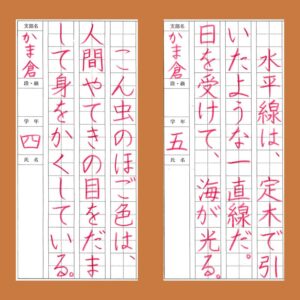 水平線は、定木で引
いたような一直線だ。
日を受けて、海が光る。
支部名
かま倉
段・級
学年
五
氏名
こん虫のほご色は、
人間やてきの目をだま
して身をかくしている。
支部名
かま倉
段・級
学年
四
氏名